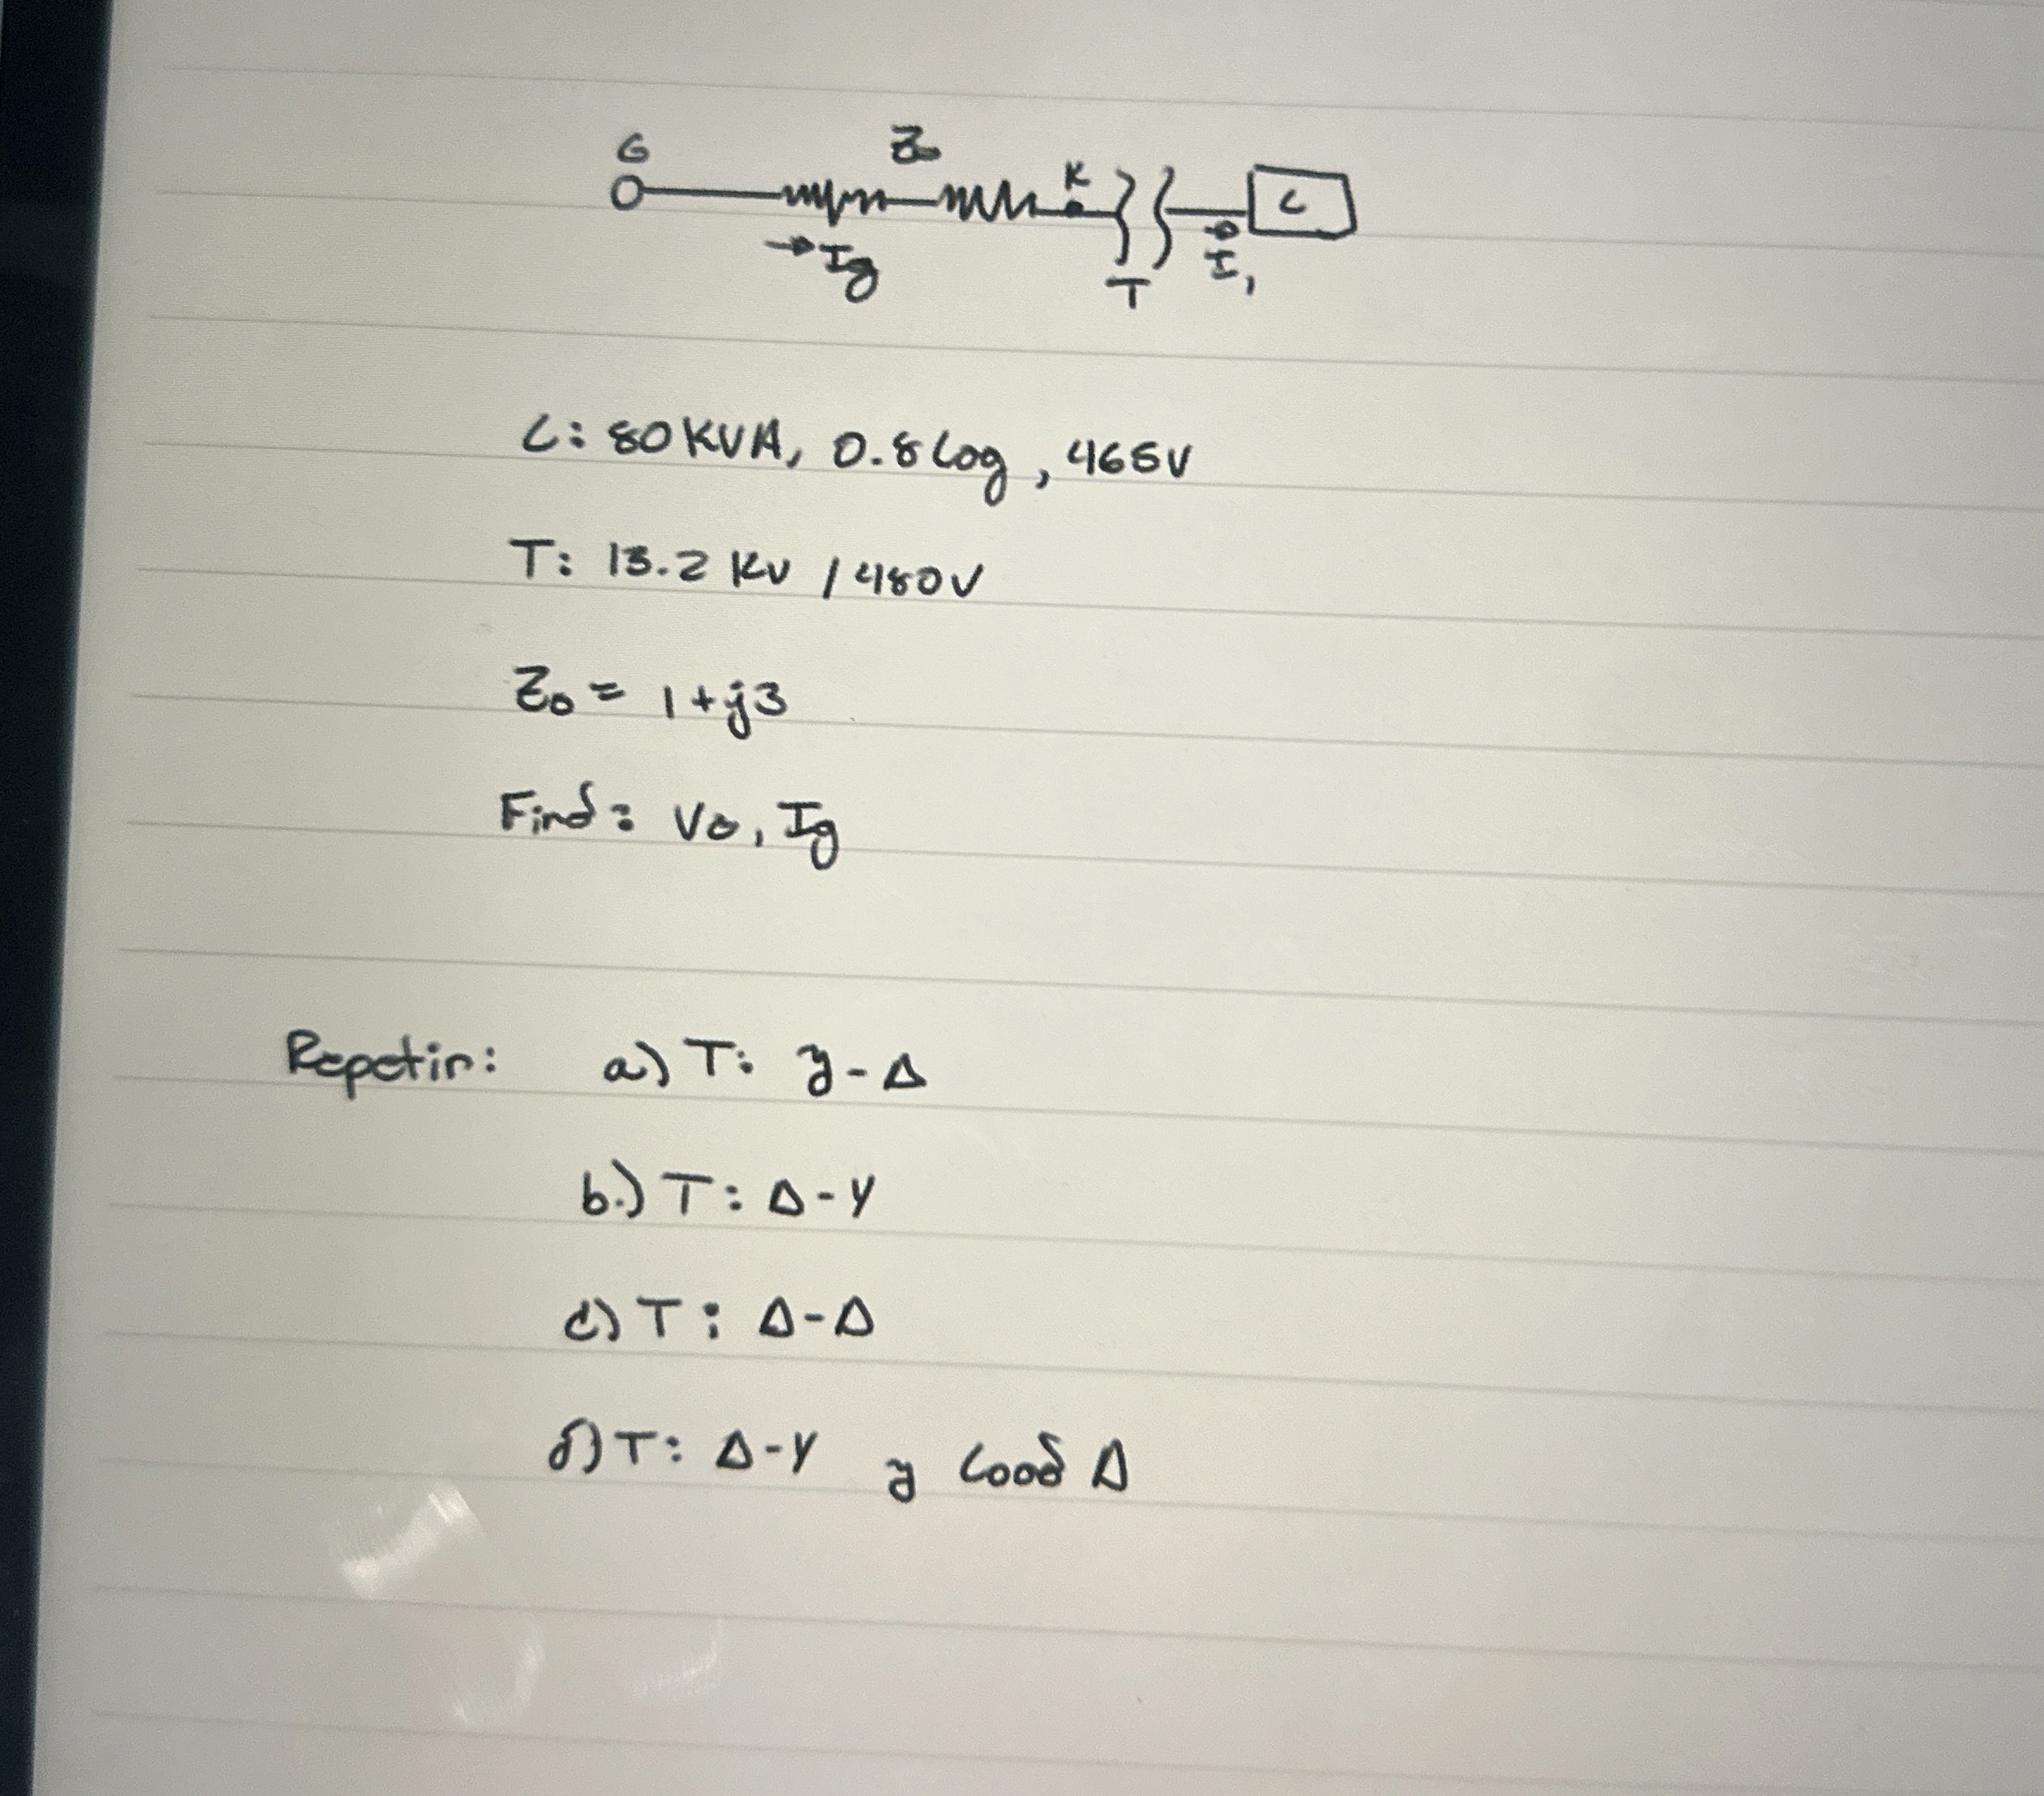 G Z₀ K C
→ Ig T I₁
C: 80 KVA, 0.8 lag, 465V
T: 13.2 KV / 480V
Z₀ = 1+j3
Find: V₀, Ig
Repetir: a) T: y-Δ
b.) T: Δ-Y
c) T: Δ-Δ
d) T: Δ-Y y load Δ